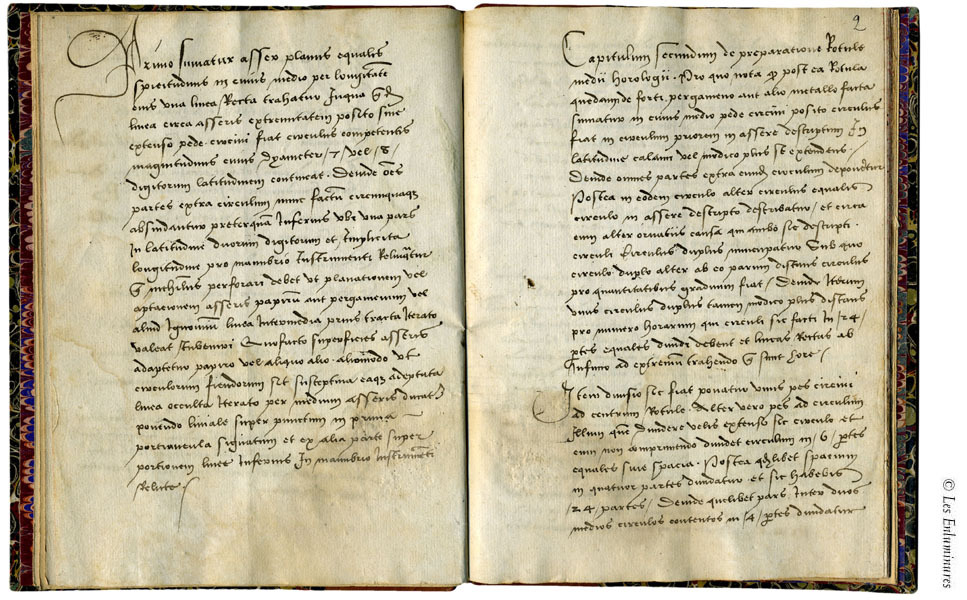 Primo sumatur asser planus equalis
spissitudinis in cuius medio per longitudinē
eius una linea Recta trahatur Inqua
linea circa asseris extremitatem posito sine
extenso pede circini fiat circulus competentis
magnitudinis cuius dyameter /7/ vel /8/
digitorum latitudinem contineat. Deinde oēs
partes extra circulum nunc factū circumquaq
abscindantur preterquā Inferius ubi una pars
In latitudine duorum digitorum et
longitudine pro manubrio Instrumenti
nichilus perforari debet ut planationem vel
aptacionem asseris papirū aut pergamenum vel
aliud linea Intermedia prius tracta Iterato
valeat Inveniri Quofacto superficies asseris
adaptetur papiro vel aliquo alio ut
circulorum fiendorum sit susceptiva eaq adeptata
linea occulta Iterato per medium asseris
ponendo liniale super punctum in prima
signatum et ex alia parte super
portionem linee Inferius In manubrio Instrumēti
relicte
2
Capitulum secundum de preparatione Rotule
medii horologii. Pro quo nota ꝙ post ea Rotula
quedam de forti pergameno aut alio metallo facta
sumatur in cuius medio pede circini posito circulus
fiat in circulum priorem in assere descriptum In
latitudine calami vel modico plus se extendens.
Deinde omnes partes extra circulum
Postea in eodem circulo alter circulus equalis
circulo in assere descripto describatur, et circa
eum alter ornatus causa qui ambo sic descripti
circuli Circulus duplus nuncupatur Sub quo
circulo duplo alter ab eo parum distans circulus
pro quantitatibus graduum fiat / Deinde Iterum
unus circulus duplus tamen modico plus distans
pro numero horarum qui circuli sic facti In 24/
ptes equales dividi debent et lineas Rectas ab
Infimo ad extremum trahendo sunt hore /
Item divisio sic fiat ponatur unus pes circini
ad centrum Rotule. Alter vero pes ad circulum
Illum quē dividere velis extenso sic circulo et
eum non comprimendo dividet circulum in /6/ ptes
equales sive spacia. Postea qdlibet spatium
in quatuor partes dividatur et sic habebis
24. partes / Deinde quelibet pars Inter duos
medios circulos contentos in /4/ ptes dividatur
© Les Enluminures